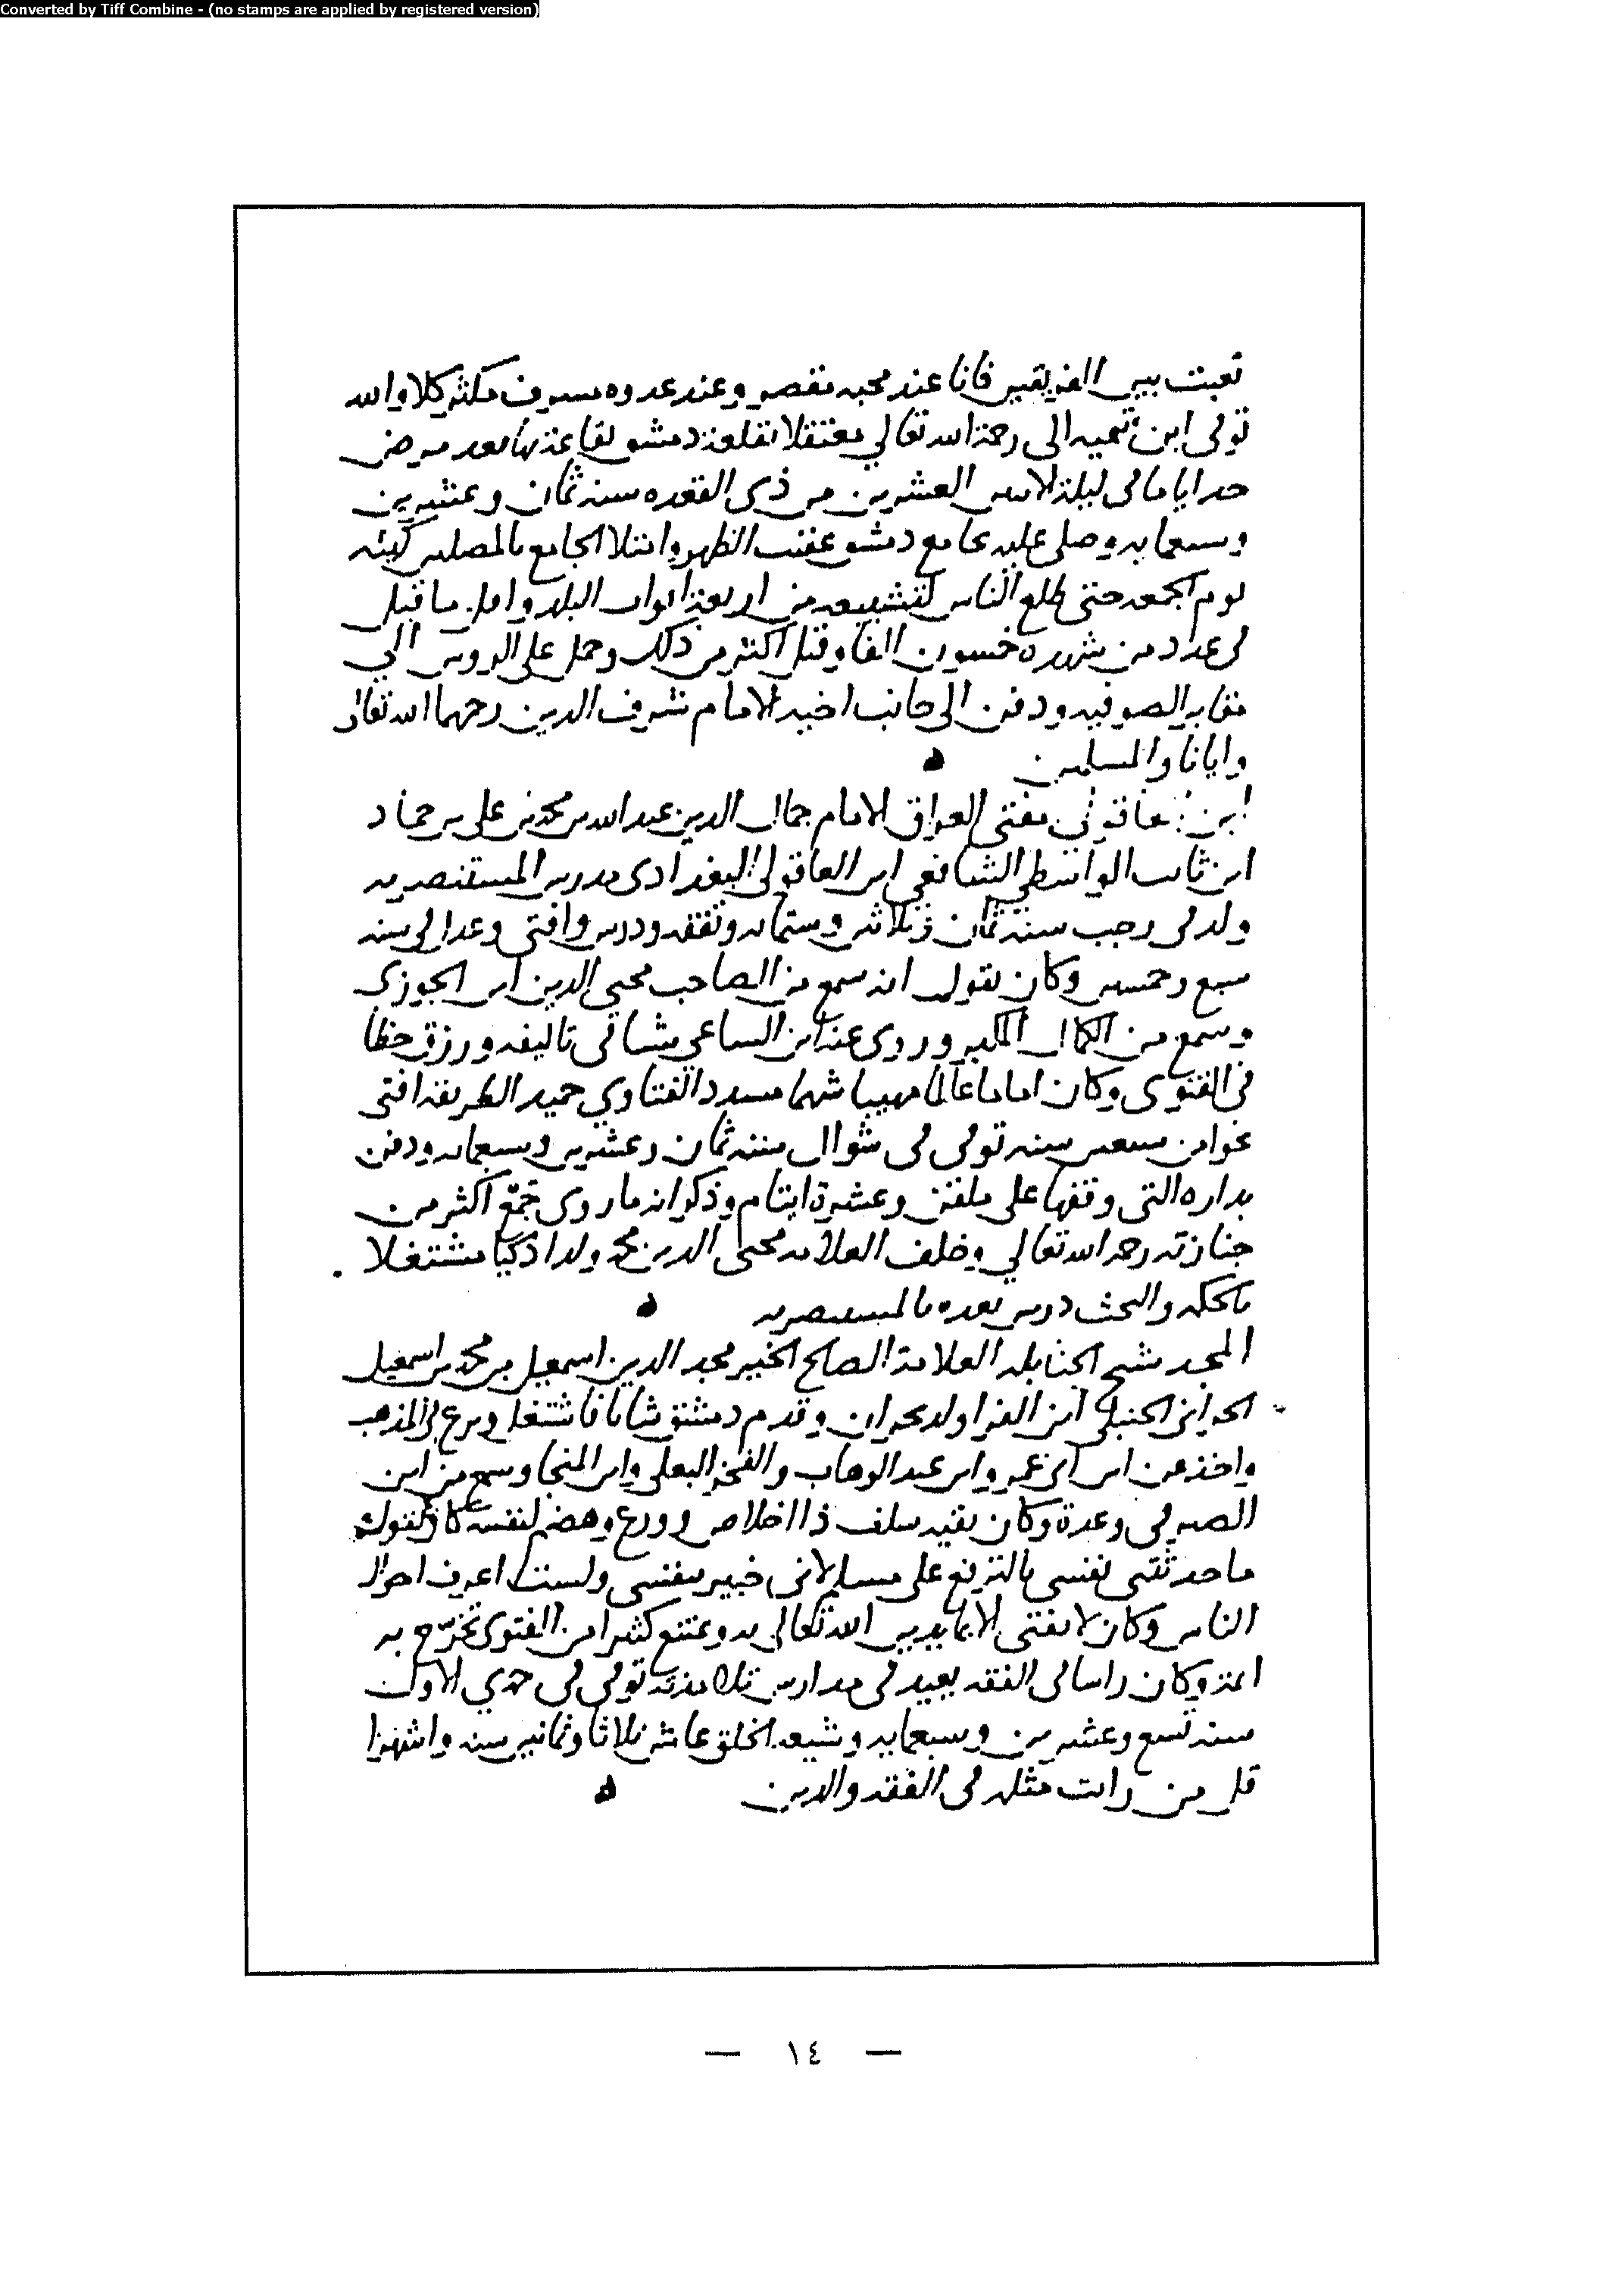 Converted by Tiff Combine - (no stamps are applied by registered version)
تعبت بين الفريقين فانا عند محبه مقصر وعند عدوه مسرف مكثر كلا والله
توفى ابن تيميه الى رحمة الله تعالى معتقلا بقلعة دمشق بقاعة بها بعد مرض
جد اياما فى ليلة الاثنين العشرين من ذى القعده سنة ثمان وعشرين
وسبعمايه وصلى عليه بجامع دمشق عقيب الظهر وامتلا الجامع بالمصلين كهيئه
يوم الجمعه حتى طلع الناس لتشييعه من اربعة ابواب البلد واقل ما قيل
فى عدد من شهده خمسون الفا وقيل اكثر من ذلك وحمل على الروس الى
مقابر الصوفيه ودفن الى جانب اخيه الامام شرف الدين رحمهما الله تعالى
وايانا والمسلمين ه
ابن العاقولى مفتى العراق الامام جمال الدين عبد الله بن محمد بن على بن حماد
ابن ثابت الواسطى الشافعى ابن العاقولى البغدادى مدرس المستنصريه
ولد فى رجب سنة ثمان وثلاثين وستمايه وتفقه ودرس وافتى وعدل فى سنه
سبع وخمسين وكان يقول انه سمع من الصاحب محيى الدين ابن الجوزى
وسمع من الكمال الكبير وروى عنه ابن الساعى شيا فى تاليفه ورزق حظا
فى الفتوى وكان اماما عالما مهيبا شهما مسدد الفتاوى حميد الطريقه افتى
نحوا من سبعين سنه توفى فى شوال سنة ثمان وعشرين وسبعمايه ودفن
بداره التى وقفها على ملقن وعشرة ايتام وذكر انه ما روى جمع اكثر من
جنازته رحمه الله تعالى وخلف العلامه محيى الدين محمد ولدا ذكيا مشتغلا
بالحكمه والبحث درس بعده بالمستنصريه ه
المجد شيخ الحنابله العلامة الصالح الخير مجد الدين اسمعيل بن محمد بن اسمعيل
الحرانى الحنبلى ابن الفرا ولد بحران وقدم دمشق شابا فاشتغل وبرع فى المذهب
واخذ عن ابن ابى عمر وابن عبد الوهاب والفخر البعلى وابن المنجا وسمع من ابن
الصيرفى وعدة وكان بقيه سلف ذا اخلاص وورع وهضم لنفسه كان يقول
ما حدثتنى نفسى بالترفع على مسلم لانى خبير بنفسى ولست اعرف احوال
الناس وكان لا يفتى الا بما يدين الله تعالى به ويمتنع كثيرا من الفتوى تخرج به
ائمة وكان راسا فى الفقه يعيد فى مدارس تلامذته توفى فى جمدي الاولى
سنه تسع وعشرين وسبعمايه وشيعه الخلق عاش ثلاثا وثمانين سنه واشهرا
قل من رايت مثله فى الفقه والدين ه
— ١٤ —